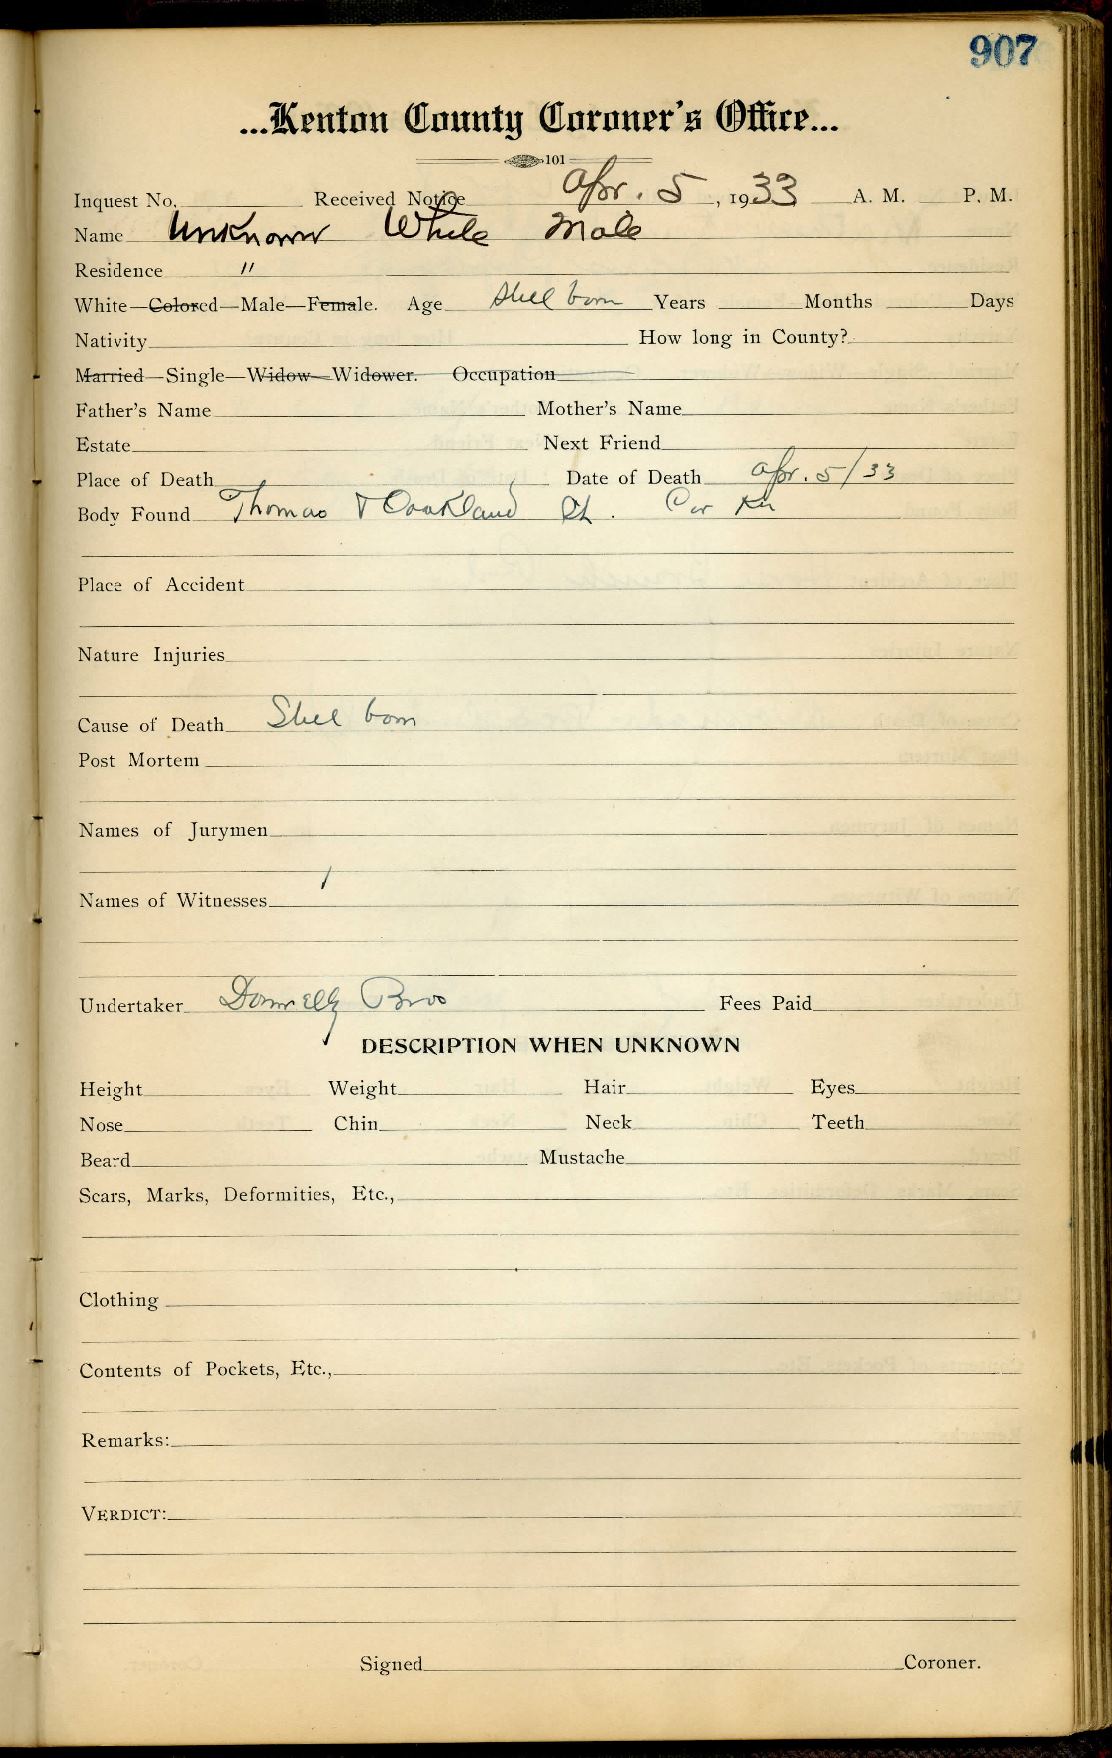 907
...Kenton County Coroner's Office...
101
Inquest No. Received Notice Apr. 5, 1933 A. M. P. M.
Name Unknown White Male
Residence "
White—Colored—Male—Female. Age Still born Years Months Days
Nativity How long in County?
Married—Single—Widow—Widower. Occupation
Father's Name Mother's Name
Estate Next Friend
Place of Death Date of Death Apr. 5/33
Body Found Thomas & Oakland St. Cov Ky
Place of Accident
Nature Injuries
Cause of Death Still born
Post Mortem
Names of Jurymen
Names of Witnesses
Undertaker Donnelly Bros Fees Paid
DESCRIPTION WHEN UNKNOWN
Height Weight Hair Eyes
Nose Chin Neck Teeth
Beard Mustache
Scars, Marks, Deformities, Etc.,
Clothing
Contents of Pockets, Etc.,
Remarks:
VERDICT:
Signed Coroner.